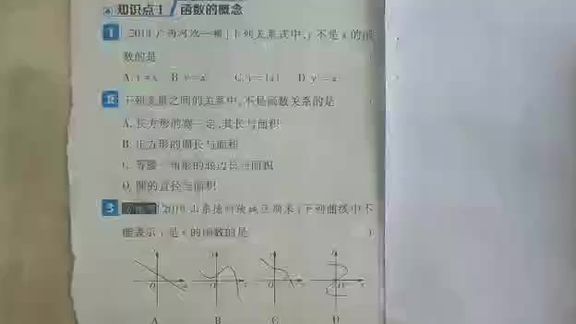 知识点1 函数的概念
1 下列关系式中,y不是x的函
数的是
A. B. C. D.
2 下列变量之间的关系中,不是函数关系的是
A. 长方形的宽一定,其长与面积
B. 正方形的周长与面积
C. 等腰三角形的底边长与面积
D. 圆的直径与面积
3 下列曲线中不
能表示y是x的函数的是
A B C D